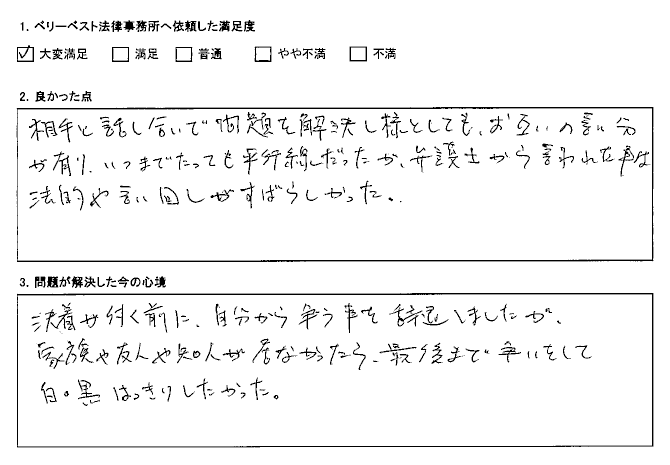 1. ベリーベスト法律事務所へ依頼した満足度
☑ 大変満足 □ 満足 □ 普通 □ やや不満 □ 不満
2. 良かった点
相手と話し合いで問題を解決し様としても、お互いの言い分
が有り、いつまでたっても平行線だったが、弁護士から言われた事は
法的や言い回しがすばらしかった。
3. 問題が解決した今の心境
決着が付く前に、自分から争う事を辞退しましたが、
家族や友人や知人が居なかったら、最後まで争いをして
白・黒はっきりしたかった。